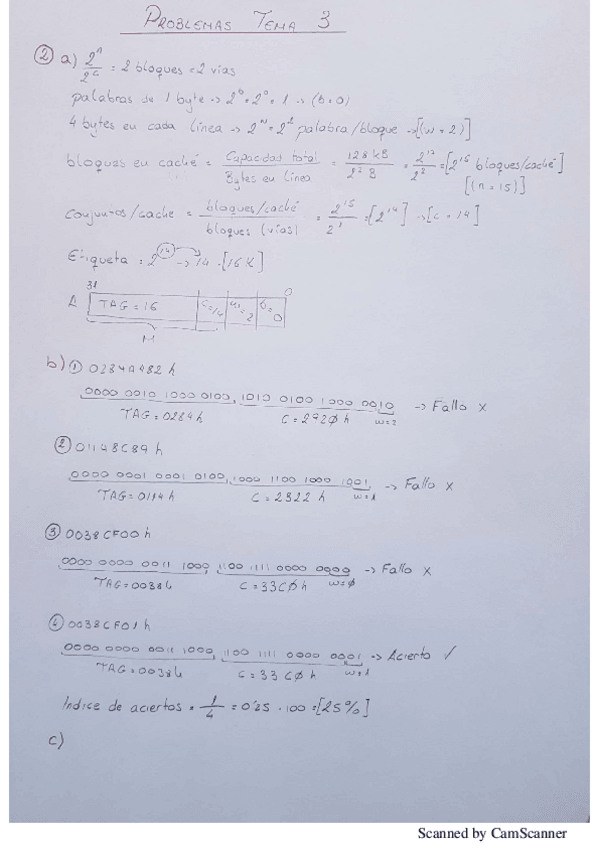 PROBLEMAS TEMA 3
② a) 2^n / 2^c = 2 bloques = 2 vías
palabras de 1 byte → 2^b = 2^0 = 1 → (b = 0)
4 bytes en cada línea → 2^w = 2^2 palabra/bloque → [(w = 2)]
bloques en caché = Capacidad total / Bytes en línea = 128 kB / 2^2 B = = [2^15 bloques/caché]
[(n = 15)]
conjuntos/cache = bloques/caché / bloques (vías) = 2^15 / 2^1 = [2^14] → [c = 14]
Etiqueta = 2^14 → 14 · [16 K]
31 0
TAG = 16 c = 14 w = 2 b = 0
M
b) ① 0284A482 h
0000 0010 1000 0100, 1010 0100 1000 0010 → Fallo x
TAG = 0284 h C = 2920 h w = 2
② 01148C89 h
0000 0001 0001 0100, 1000 1100 1000 1001 → Fallo x
TAG = 0114 h C = 2322 h w = 1
③ 0038CF00 h
0000 0000 0011 1000, 1100 1111 0000 0000 → Fallo x
TAG = 0038h C = 33C0 h w = 0
④ 0038CF01 h
0000 0000 0011 1000, 1100 1111 0000 0001 → Acierto ✓
TAG = 0038h C = 33C0 h w = 1
Indice de aciertos = 1/4 = 0'25 · 100 = [25%]
c)
Scanned by CamScanner